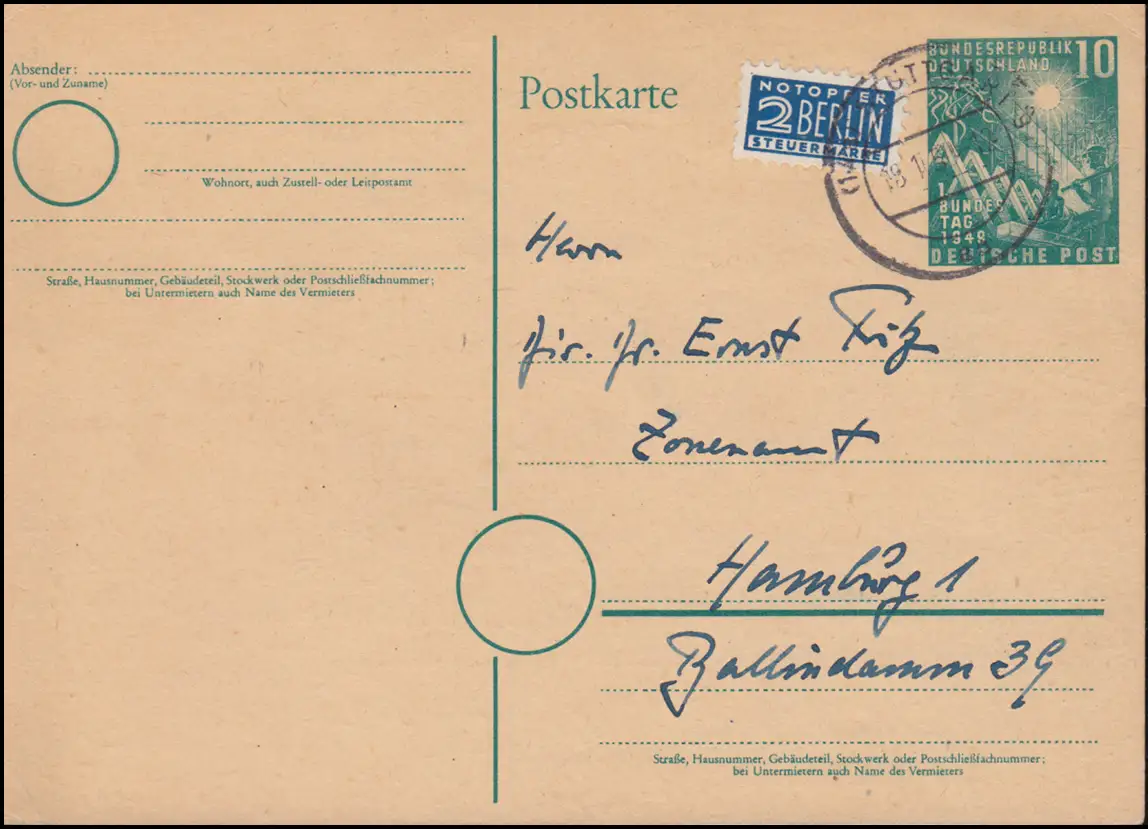 Absender:
(Vor- und Zuname)
Wohnort, auch Zustell- oder Leitpostamt
Straße, Hausnummer, Gebäudeteil, Stockwerk oder Postschließfachnummer;
bei Untermietern auch Name des Vermieters
Postkarte
NOTOPFER
2 BERLIN
STEUERMARKE
BUNDESREPUBLIK 10
DEUTSCHLAND
1.
BUNDES
TAG
1949
DEUTSCHE POST
Herrn
Dir. Dr. Ernst Fitz
Zonenamt
Hamburg 1
Ballindamm 39
Straße, Hausnummer, Gebäudeteil, Stockwerk oder Postschließfachnummer;
bei Untermietern auch Name des Vermieters